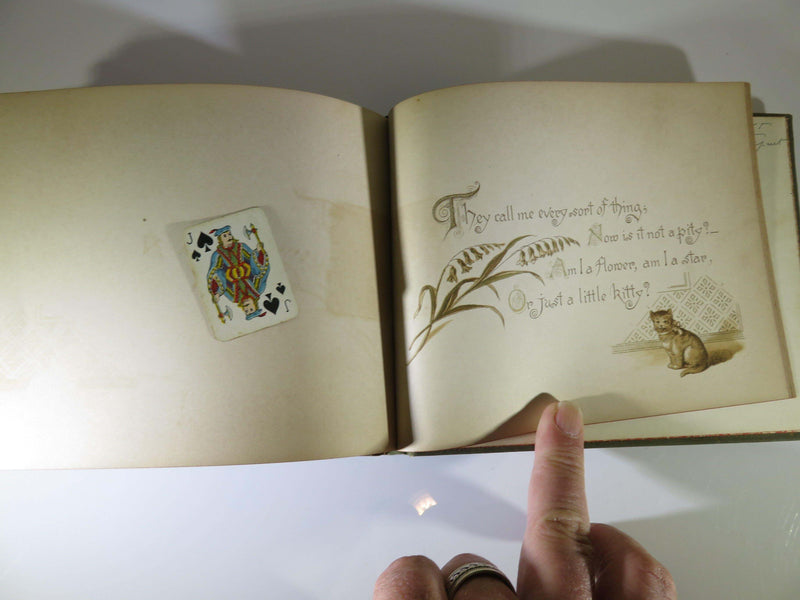 J
J
They call me every sort of thing;
Now is it not a pity?—
Am I a flower, am I a star,
Or just a little kitty?